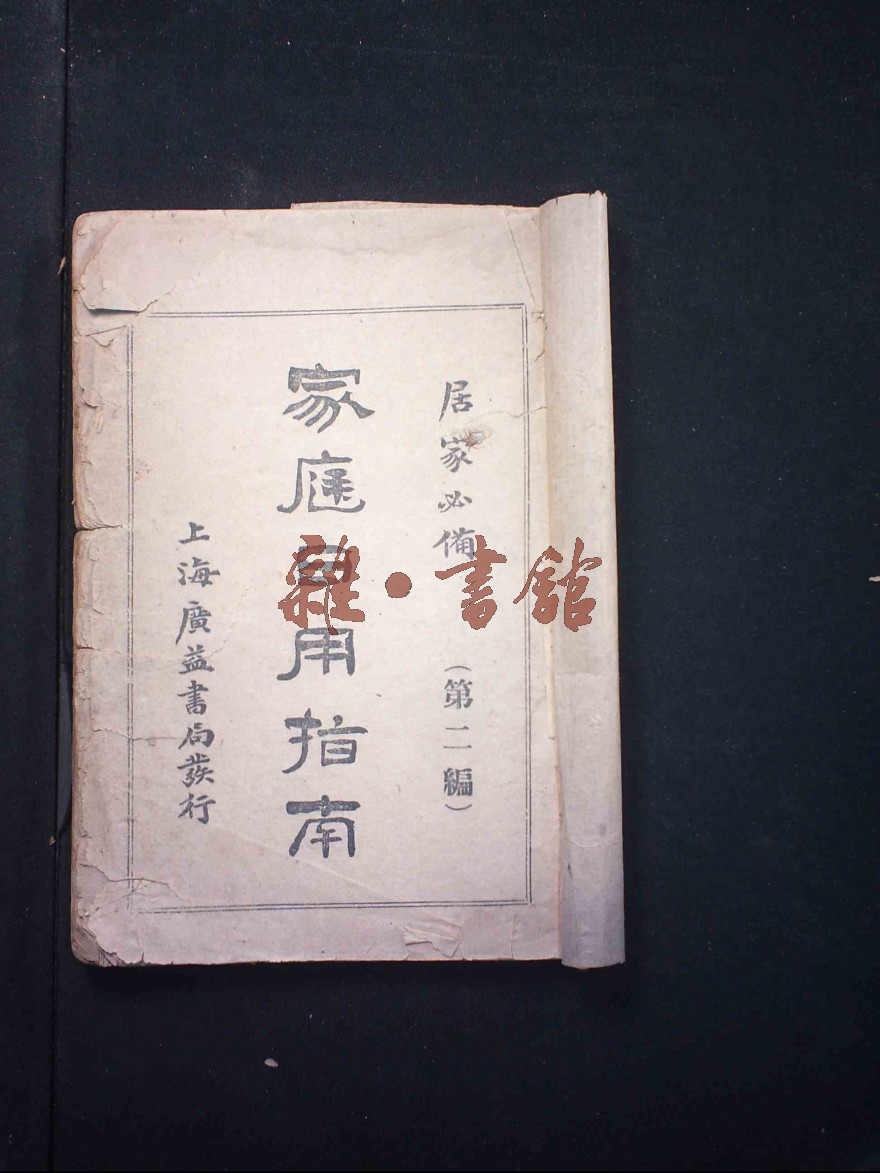 居家必備
（第二編）
家庭日用指南
上海廣益書局發行
雜·書館